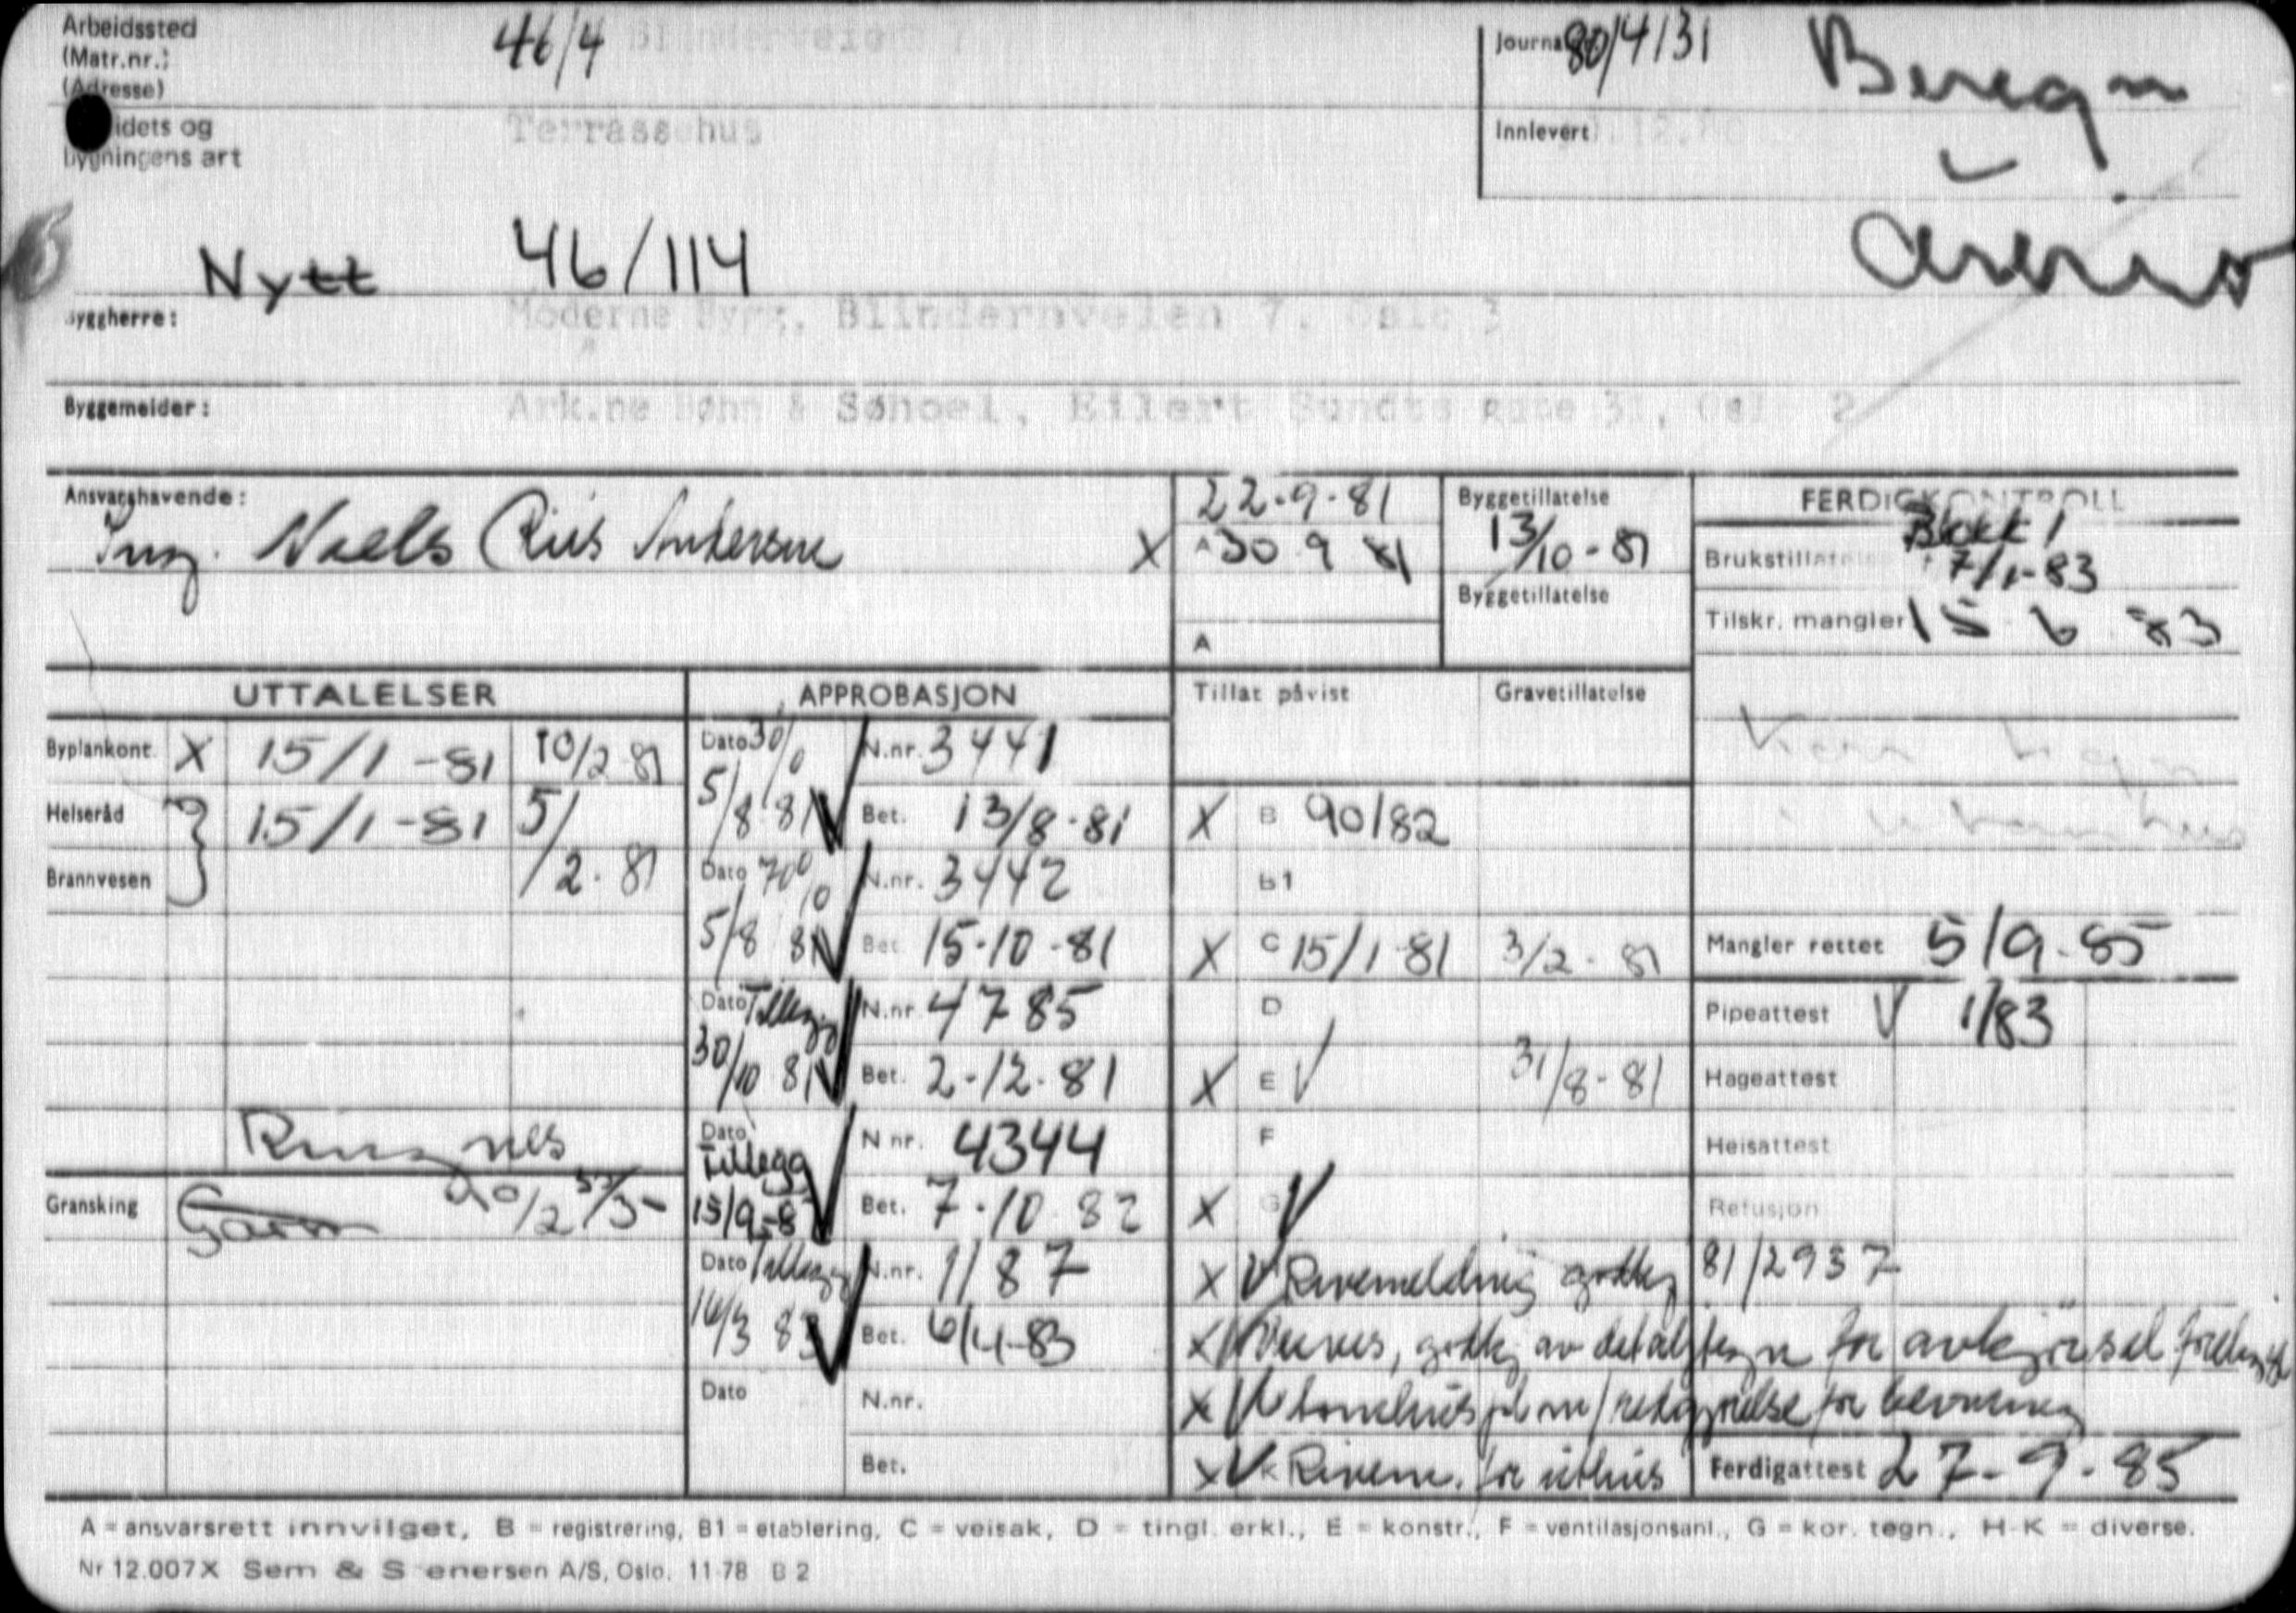 Arbeidssted
(Matr.nr.:
(Adresse)
46/4 Blindernveien 7
Journal 80/4131
Beregn
idets og
bygningens art
Terrassehus
Innlevert
Nytt 46/114
Byggherre: Moderne Bygg, Blindernveien 7. Oslo 3
Byggemelder: Ark.ne Høhn & Sehoel, Eilert Sundts gate 31, Oslo 2
Ansvarshavende: Ing. Niels Riis Andersen X
22-9-81
A 30 9 81
A
Byggetillatelse
13/10-81
Byggetillatelse
FERDIGKONTROLL
Blokk 1
Brukstillatelse 7/1-83
Tilskr. mangler 15 6 83
UTTALELSER
Byplankont. X 15/1-81 10/2 81
Helseråd 15/1-81 5/2.81
Brannvesen
Ringnes
Gransking
APPROBASJON
Dato N.nr. 3441
5/8 81 Bet. 13/8-81
Dato N.nr. 3442
5/8 81 Bet. 15-10-81
Dato Tillegg N.nr. 4785
30/10 81 Bet. 2-12-81
Dato Tillegg N nr. 4344
13/9-82 Bet. 7-10 82
Dato Tillegg N.nr. 1187
16/3 83 Bet. 6/4-83
Dato N.nr.
Bet.
Tillat påvist Gravetillatelse
X B 90/82
B1
X C 15/1 81 3/2-81
D
X E V 31/8-81
F
X G V
X V Rivemelding godkj 81/2937
X V godkj av detaljtegn for avkjørsel
X V redegjørelse for
X V K Rivem. for uthus
Mangler rettet 5/9-85
Pipeattest V 1/83
Hageattest
Heisattest
Refusjon
Ferdigattest 27-9-85
A = ansvarsrett innvilget, B = registrering, B1 = etablering, C = veisak, D = tingl. erkl., E = konstr., F = ventilasjonsanl., G = kor. tegn., H-K = diverse.
Nr 12.007X Sem & S enersen A/S, Oslo. 11 78 B 2